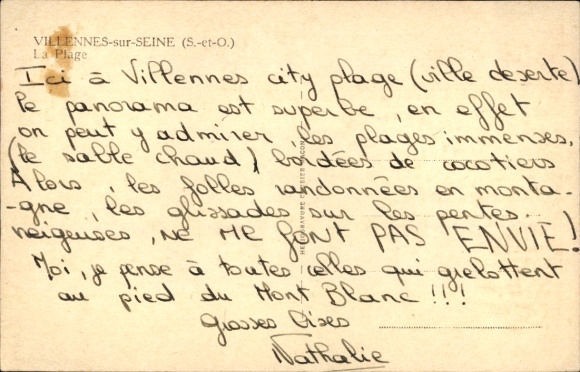 VILLENNES-sur-SEINE (S.-et-O.)
La Plage
Ici à Villennes city plage (ville deserte)
le panorama est superbe, en effet
on peut y admirer les plages immenses,
(le sable chaud) bordées de cocotiers
Alors, les folles randonnées en monta-
-gne, les glissades sur les pentes...
neigeuses, NE ME FONT PAS ENVIE!
Moi, je pense à toutes celles qui grelottent
au pied du Mont Blanc !!!
Grosses Bises
Nathalie